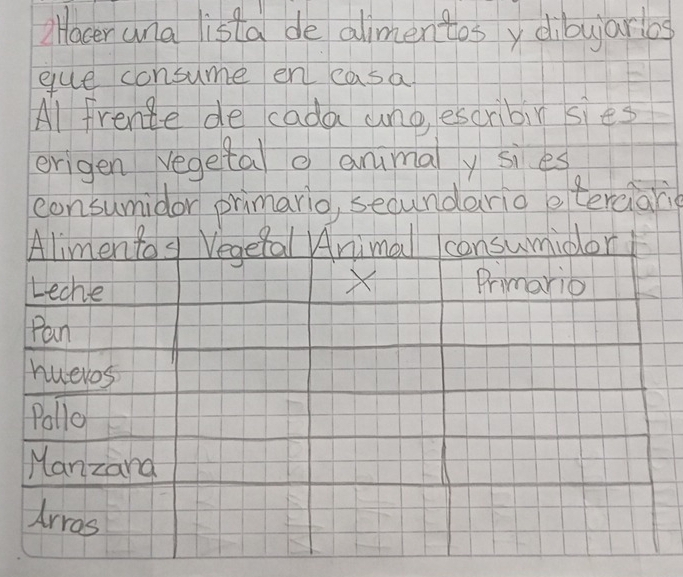 2 Hacer una lista de alimentos y dibujarlos
que consume en casa.
Al frente de cada uno, escribir si es
origen vegetal o animal y si es
consumidor primario, secundario o terciario
Alimentos Vegetal Animal consumidor
Leche X Primario
Pan
huevos
Pollo
Manzana
Arros